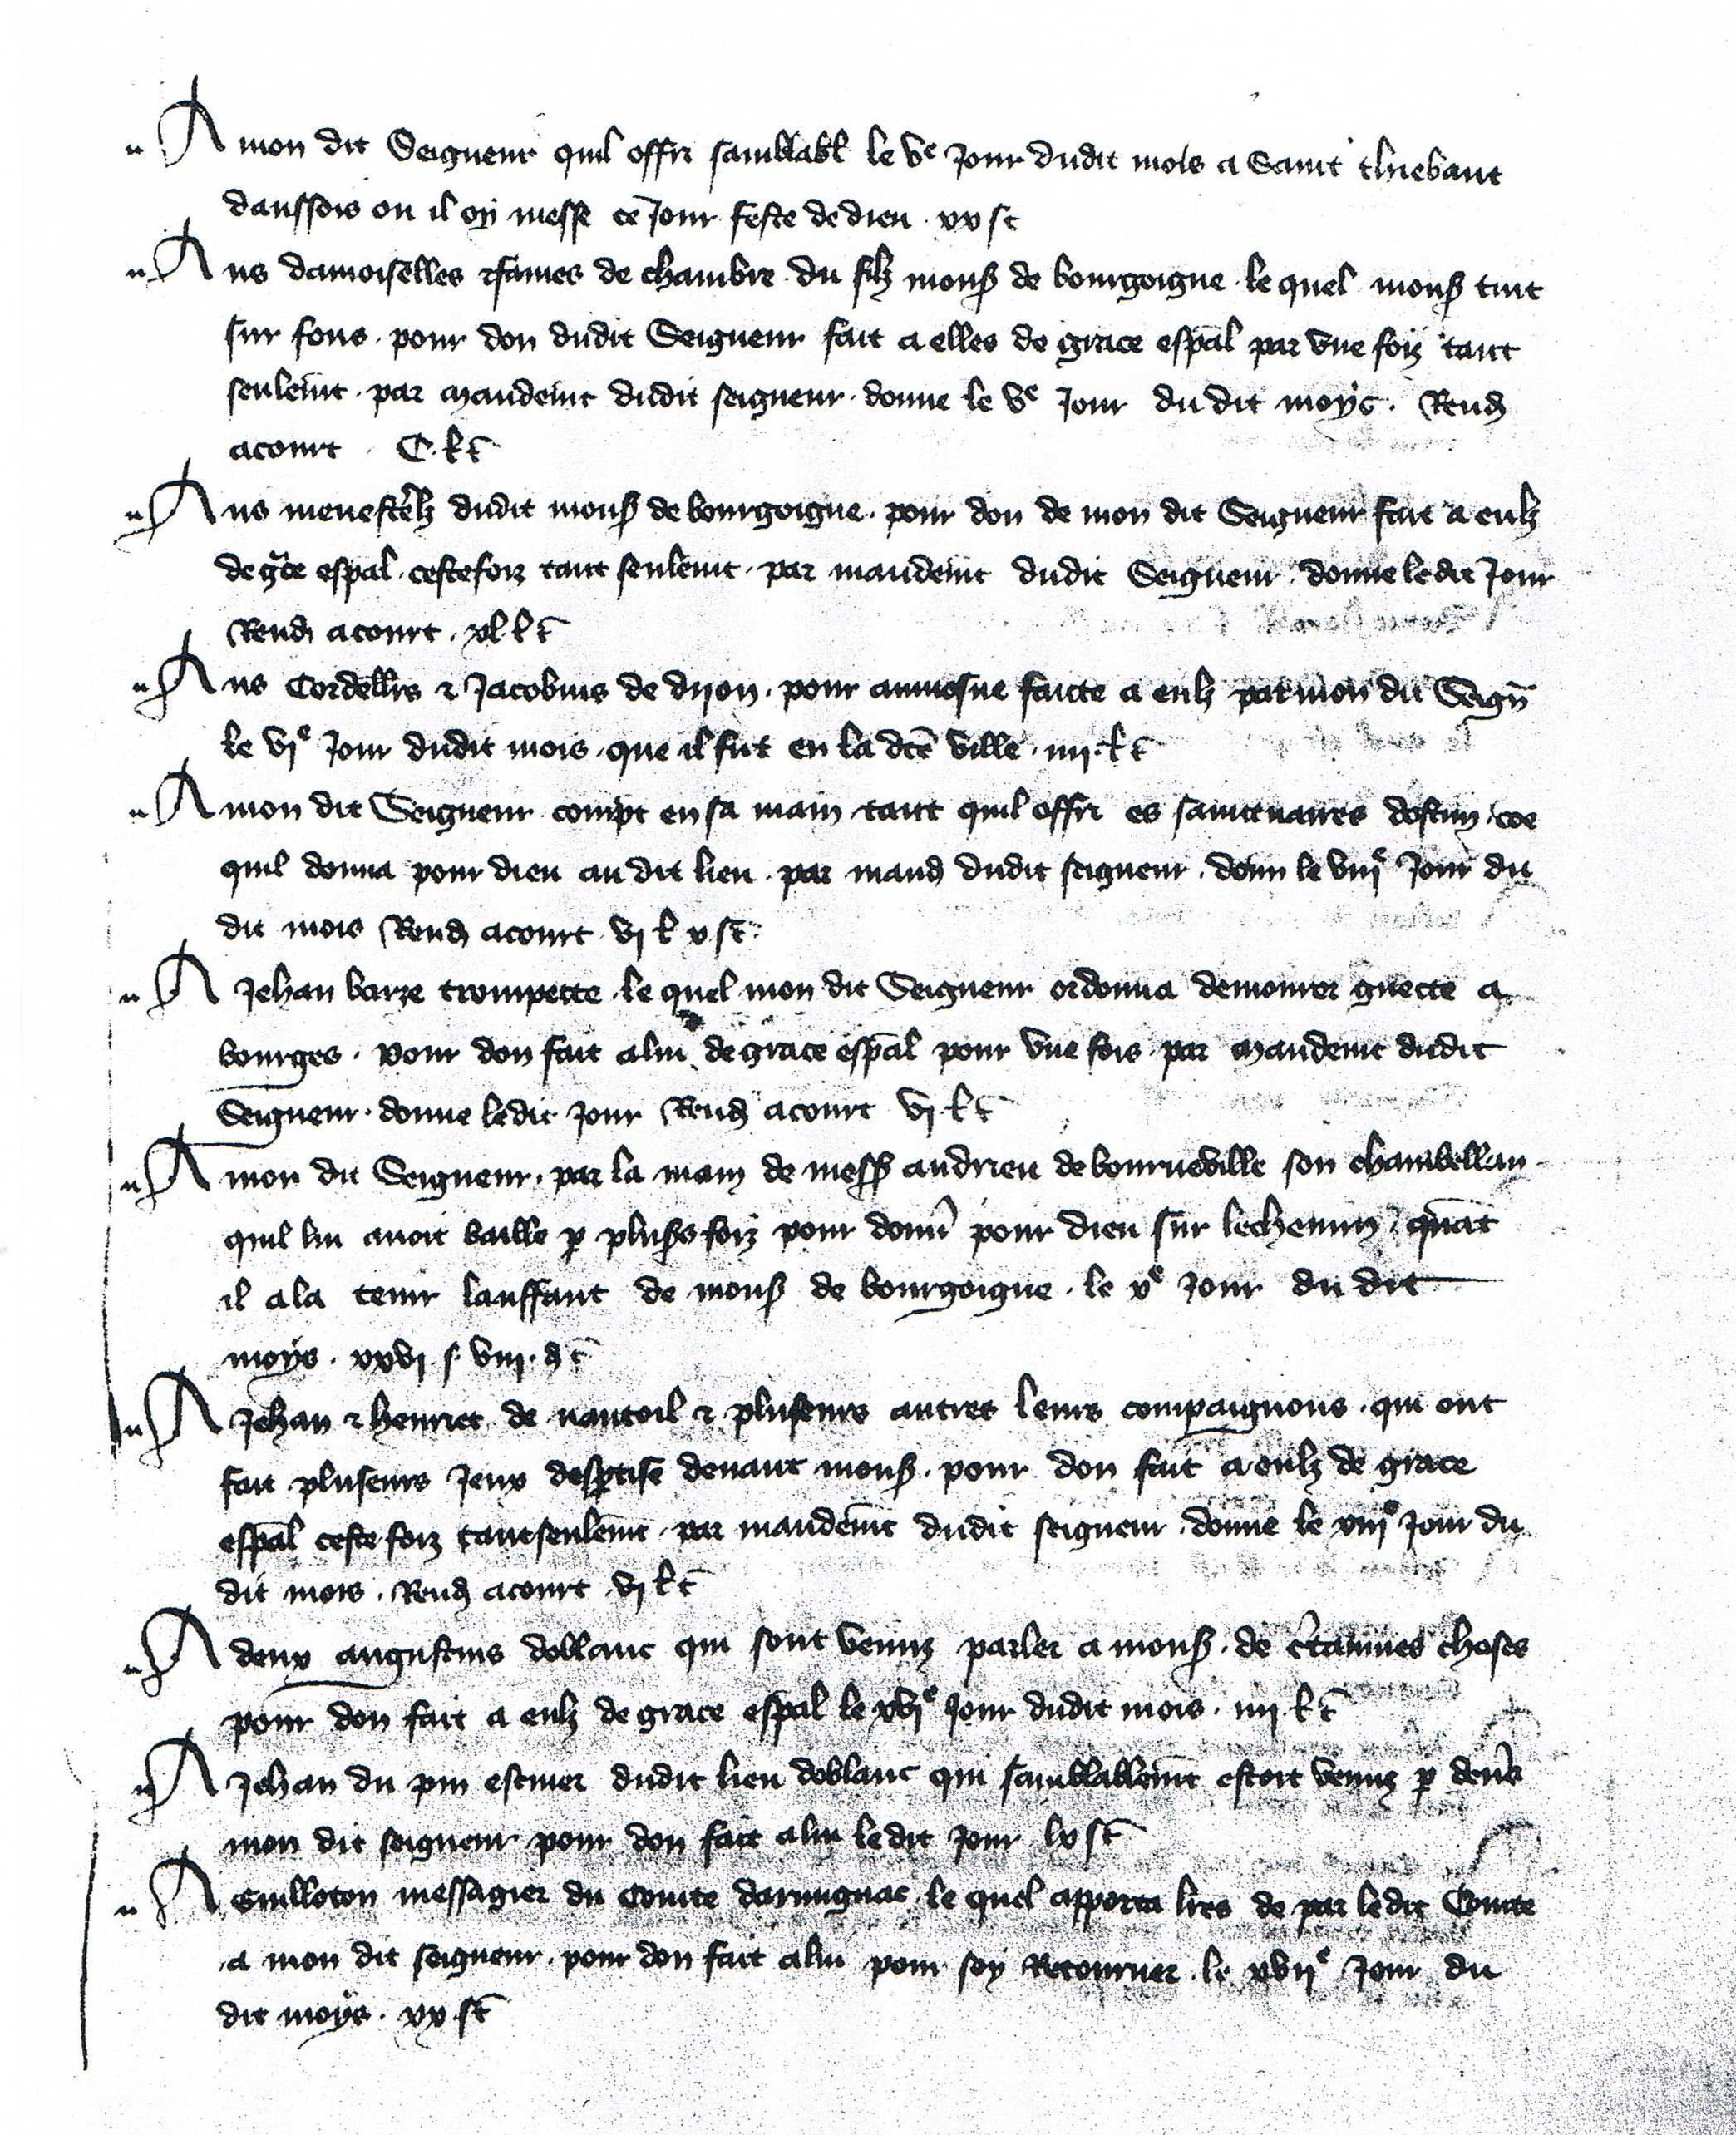 A mon dit Seigneur quil offri samblabl le Ve Jour dudit mois a Saint thiebaut
daussois ou il oy messe ce Jour feste de dieu . xx s t
Aus damoiselles & fames de chambre du filz mons de bourgoigne . le quel mons tint
sur fons . pour don dudit Seigneur fait a elles de grace espal par une foiz tant
seulemt . par mandemt dudit seigneur . donne le Ve Jour du dit moys . Rend
a court . C . l t
Aus menestelz dudit mons de bourgoigne . pour don de mon dit Seigneur fait a eulz
de gce espal . ceste foiz tant seulemt . par mandemt dudit Seigneur . donne le dit Jour
Rend a court . xl . l t
Aus Cordellrs & Jacobins de dijon . pour aumosne faicte a eulz par mon dit Seign
le vje Jour dudit mois . que il fut en la dce ville . iiij . l t
A mon dit Seigneur compt en sa main tant quil offri es saintuaires dostun coe
quil donna pour dieu au dit lieu . par mand dudit seigneur . donn le viije Jour du
dit mois Rend a court vj l x s t
A Jehan barze trompette . le quel mon dit Seigneur ordonna demourer guecte a
bourges . pour don fait a lui de grace espal pour une fois par mandemt dudit
Seigneur . donne le dit Jour Rend a court vj . l t
A mon dit Seigneur . par la main de mess andrieu de bourneville son chambellan
quil lui avoit baille p pluss foiz pour donn pour dieu sur le chemin quat
il ala tenir lanffant de mons de bourgoigne . le xe Jour du dit
moys . xxvj s viij . d t
A Jehan & henriet de nantoil & pluseurs autres leurs compaignons . qui ont
fait pluseurs Jeux desptise devant mons . pour don fait a eulz de grace
espal ceste foiz tant seulemt . par mandemt dudit seigneur . donne le xiije Jour du
dit mois . Rend a court vj l t
A deux augustins doblanc qui sont venuz parler a mons . de ctaines choses
pour don fait a eulz de grace espal le xvje Jour dudit mois . iiij l t
A Jehan du pin escuier dudit lieu doblanc qui samblablemt estoit venuz p devs
mon dit seigneur pour don fait a lui le dit Jour lx s t
A Guilloton messagier du Conte darmignac . le quel apporta lres de par le dit Conte
a mon dit seigneur . pour don fait a lui pour soy Retourner . le xvije Jour du
dit moys . xx . s t